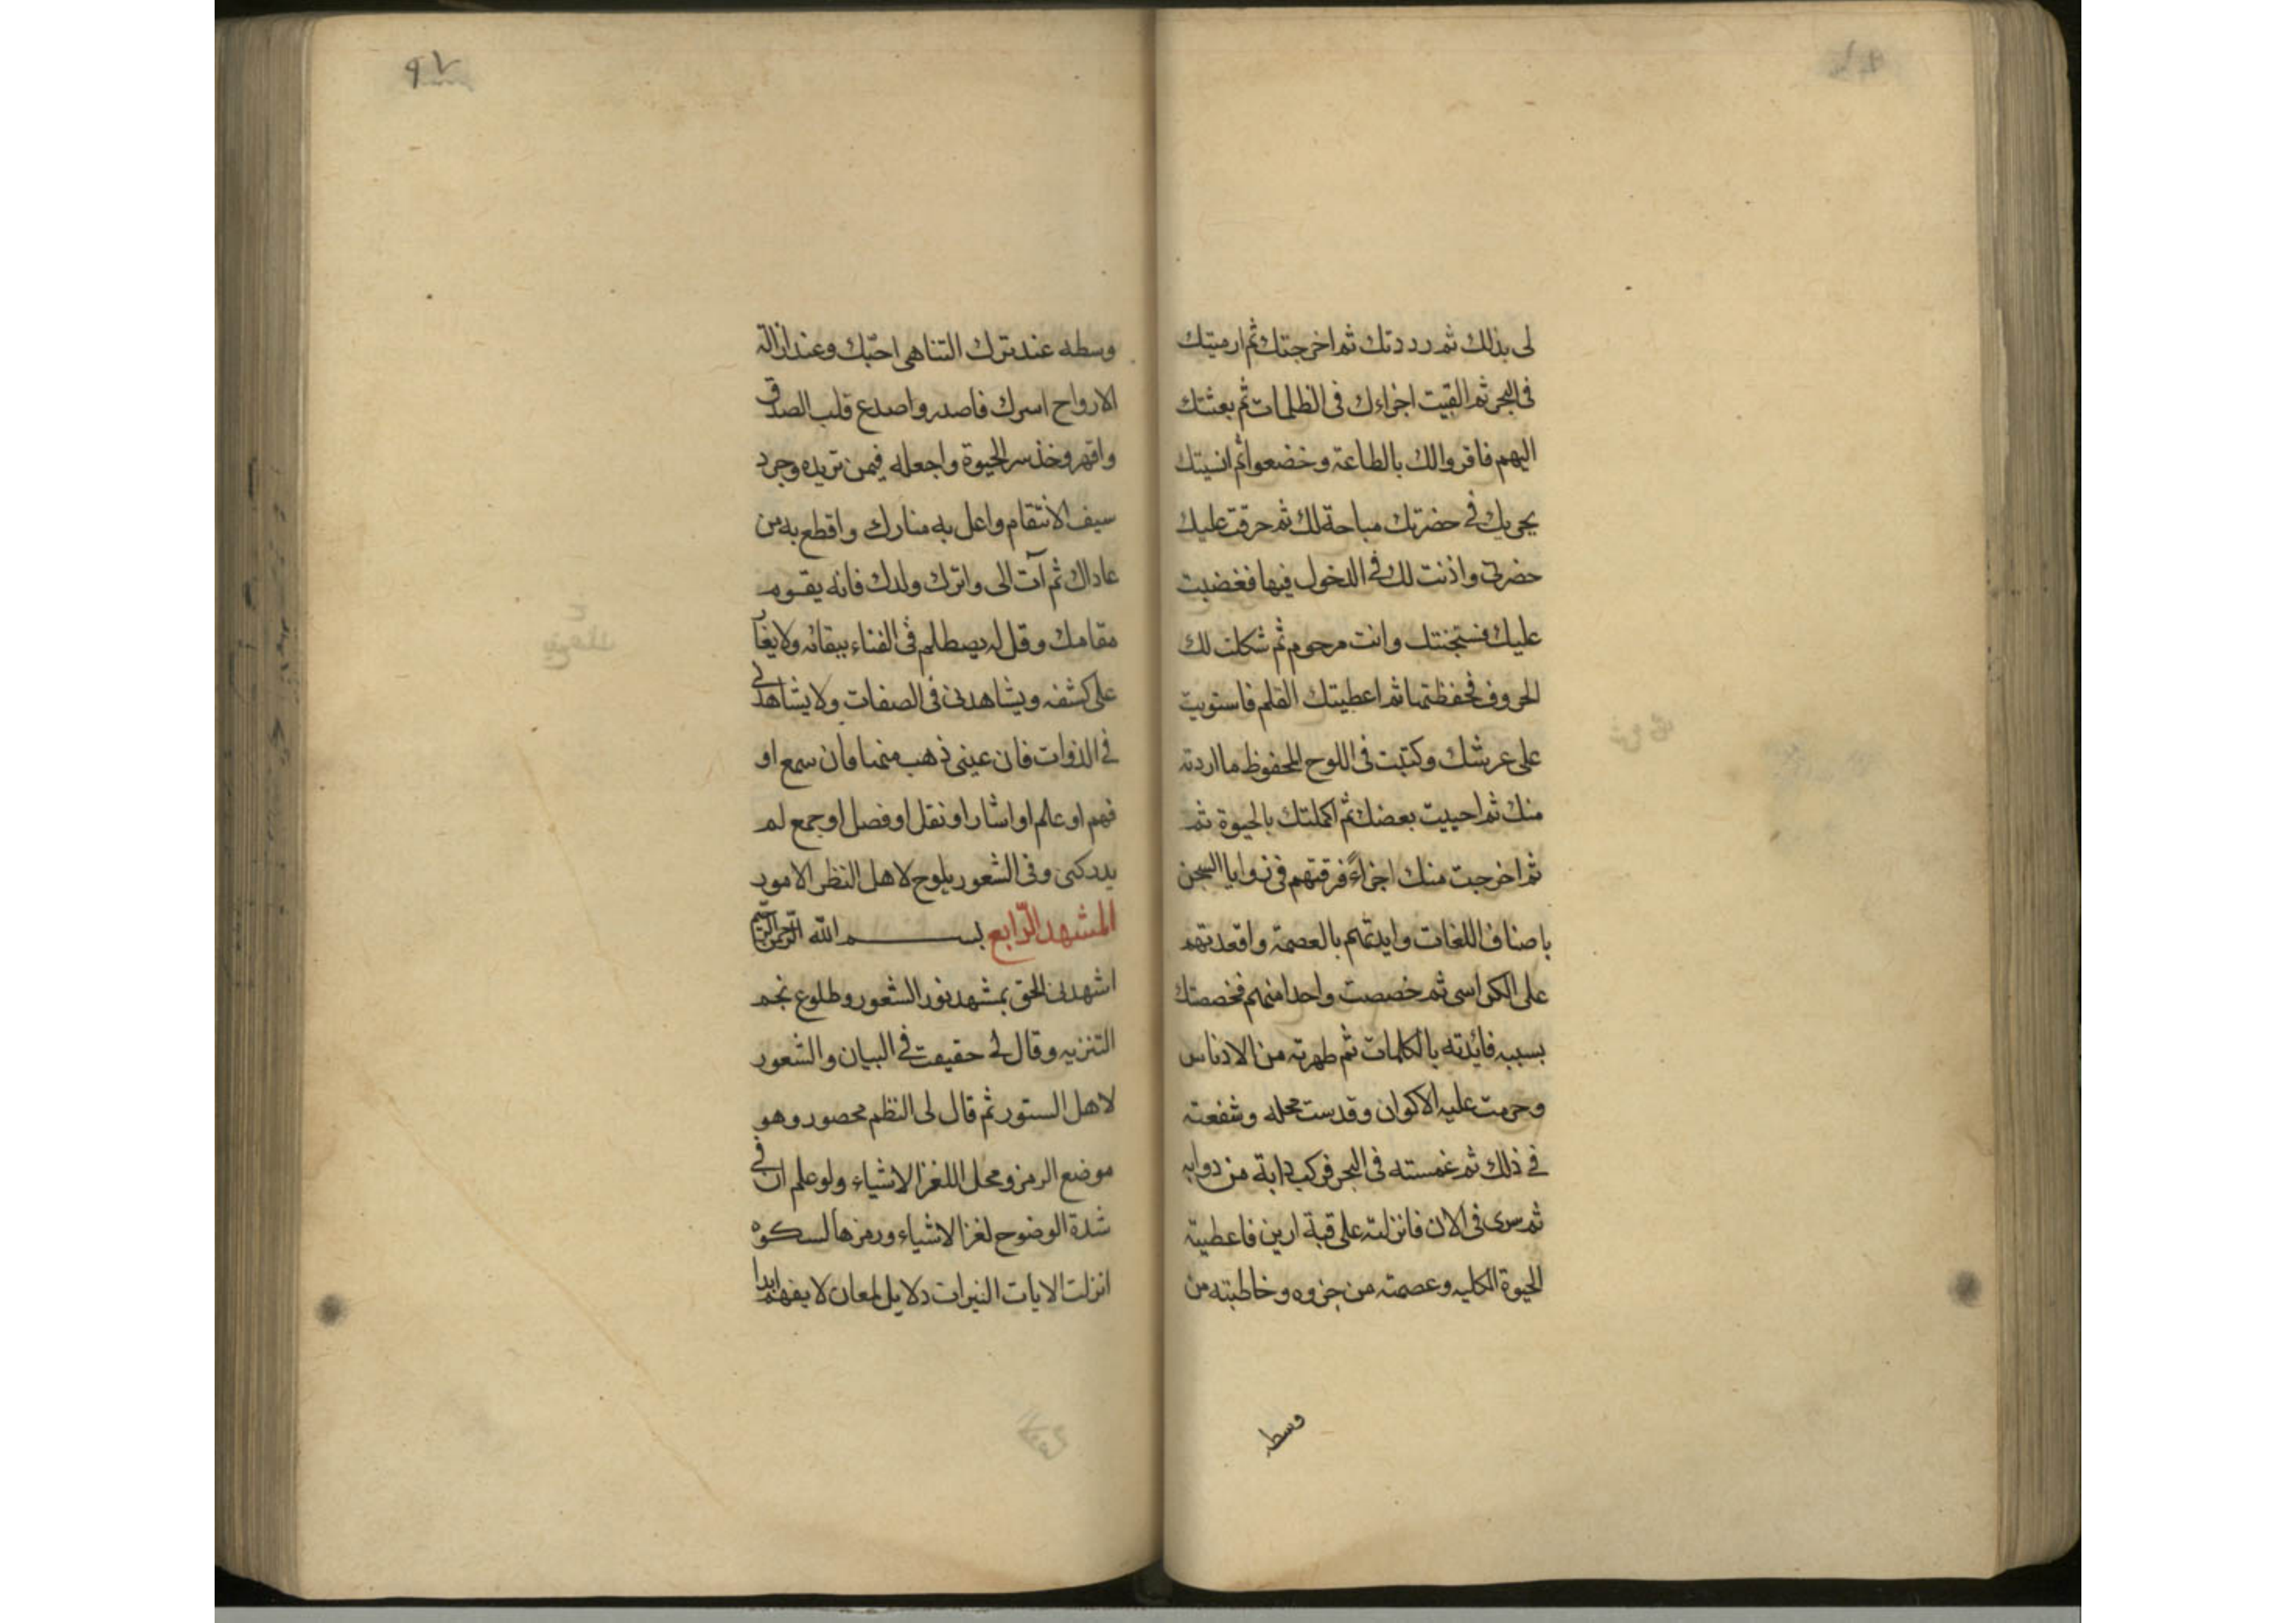 لى بذلك ثم رددتك ثم اخرجتك ثم ارميتك
فى البحر ثم القيت اجزاءك فى الظلمات ثم بعثتك
اليهم فاقروا لك بالطاعة وخضعوا ثم انسيتك
فى حضرتك مباحة لك ثم حرقت عليك
حضرتى واذنت لك فى الدخول فيها فغضبت
عليك فسجنتك وانت مرحوم ثم شكلت لك
الحروف فحفظتها ثم اعطيتك القلم فاستويت
على عرشك وكتبت فى اللوح المحفوظ ما اردته
منك ثم احييت بعضك ثم اكملتك بالحيوة ثم
ثم اخرجت منك اجزاءً فرقتهم فى زوايا السجن
باصناف اللغات وايدتهم بالعصمة واقعدتهم
على الكراسى ثم خصصت واحدا منهم فخصصتك
بسببه فايدته بالكلمات ثم طهرته من الادناس
وحرمت عليه الاكوان وقدست محله وشفعته
فى ذلك ثم غمسته فى البحر فركب دابة من دوابه
ثم سرى فى الان فانزلته على قبة ارين فاعطيته
الحيوة الكليه وعصمته من جزوه وخاطبته من
وسطه
٩٧
وسطه عند ترك التناهى احبّك وعند ازالة
الارواح اسرك فاصدر واصدع قلب الصدق
واقهر وخذ سر الحيوة واجعله فيمن تريده وجرد
سيف الانتقام واعل به منارك واقطع به من
عاداك ثم آت الى واترك ولدك فانه يقوم
مقامك وقل له يصطلم فى الفناء ببقائه ولا
على كشفه ويشاهدنى فى الصفات ولا يشاهدنى
فى الذوات فان عينى ذهب منها فان سمع او
فهم او علم او اشار او نقل او فصل او جمع لم
يدركنى وفى الشعور يلوح لاهل النظر الامور
المشهد الرّابع بسم الله الرحمن الرحيم
اشهدنى الحق بمشهد نور الشعور وطلوع نجم
التنزيه وقال لى حقيقت فى البيان والشعور
لاهل الستور ثم قال لى النظم محصور وهو
موضع الرمز ومحل اللغز الاشياء ولو علم ان فى
شدة الوضوح لغز الاشياء ورمزها لسلكوه
انزلت الايات النيرات دلايل لمعان لا يفهم ابدا